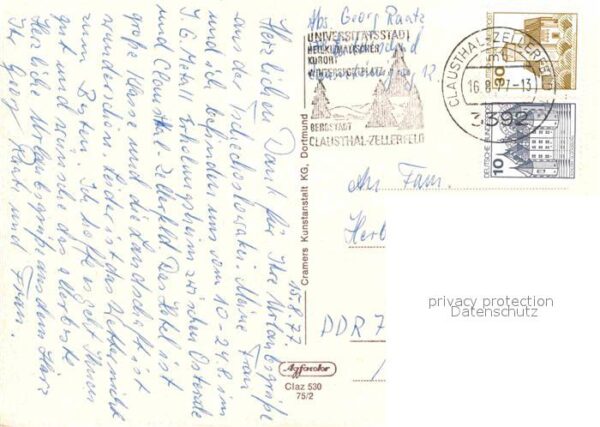 15.8.77
Herzlichen Dank für Ihre Urlaubsgrüße
aus der Tschechoslowakei. Meine Frau
und ich befinden uns vom 10-24.8 im
I.G. Metall Erholungsheim zwischen Osterode
und Clausthal-Zellerfeld. Das Hotel ist
große Klasse und die Landschaft ist
wunderschön. Leider ist das Wetter nicht
zu Besten. Ich hoffe es geht Ihnen
gut und wünsche das allerbeste
Herzliche Urlaubsgrüße aus dem Harz
Ihr Georg Raatz und Frau.
Cramers Kunstanstalt KG, Dortmund
Abs. Georg Raatz
12
UNIVERSITÄTSSTADT
HEILKLIMATISCHER
KURORT
WINTERSPORTPLATZ
BERGSTADT
CLAUSTHAL-ZELLERFELD
CLAUSTHAL-ZELLERFELD
16.8.77-13
3392
30
10
DEUTSCHE BUNDESPOST
An Fam.
Herb
DDR 7
privacy protection
Datenschutz
Agfacolor
Claz 530
75/2